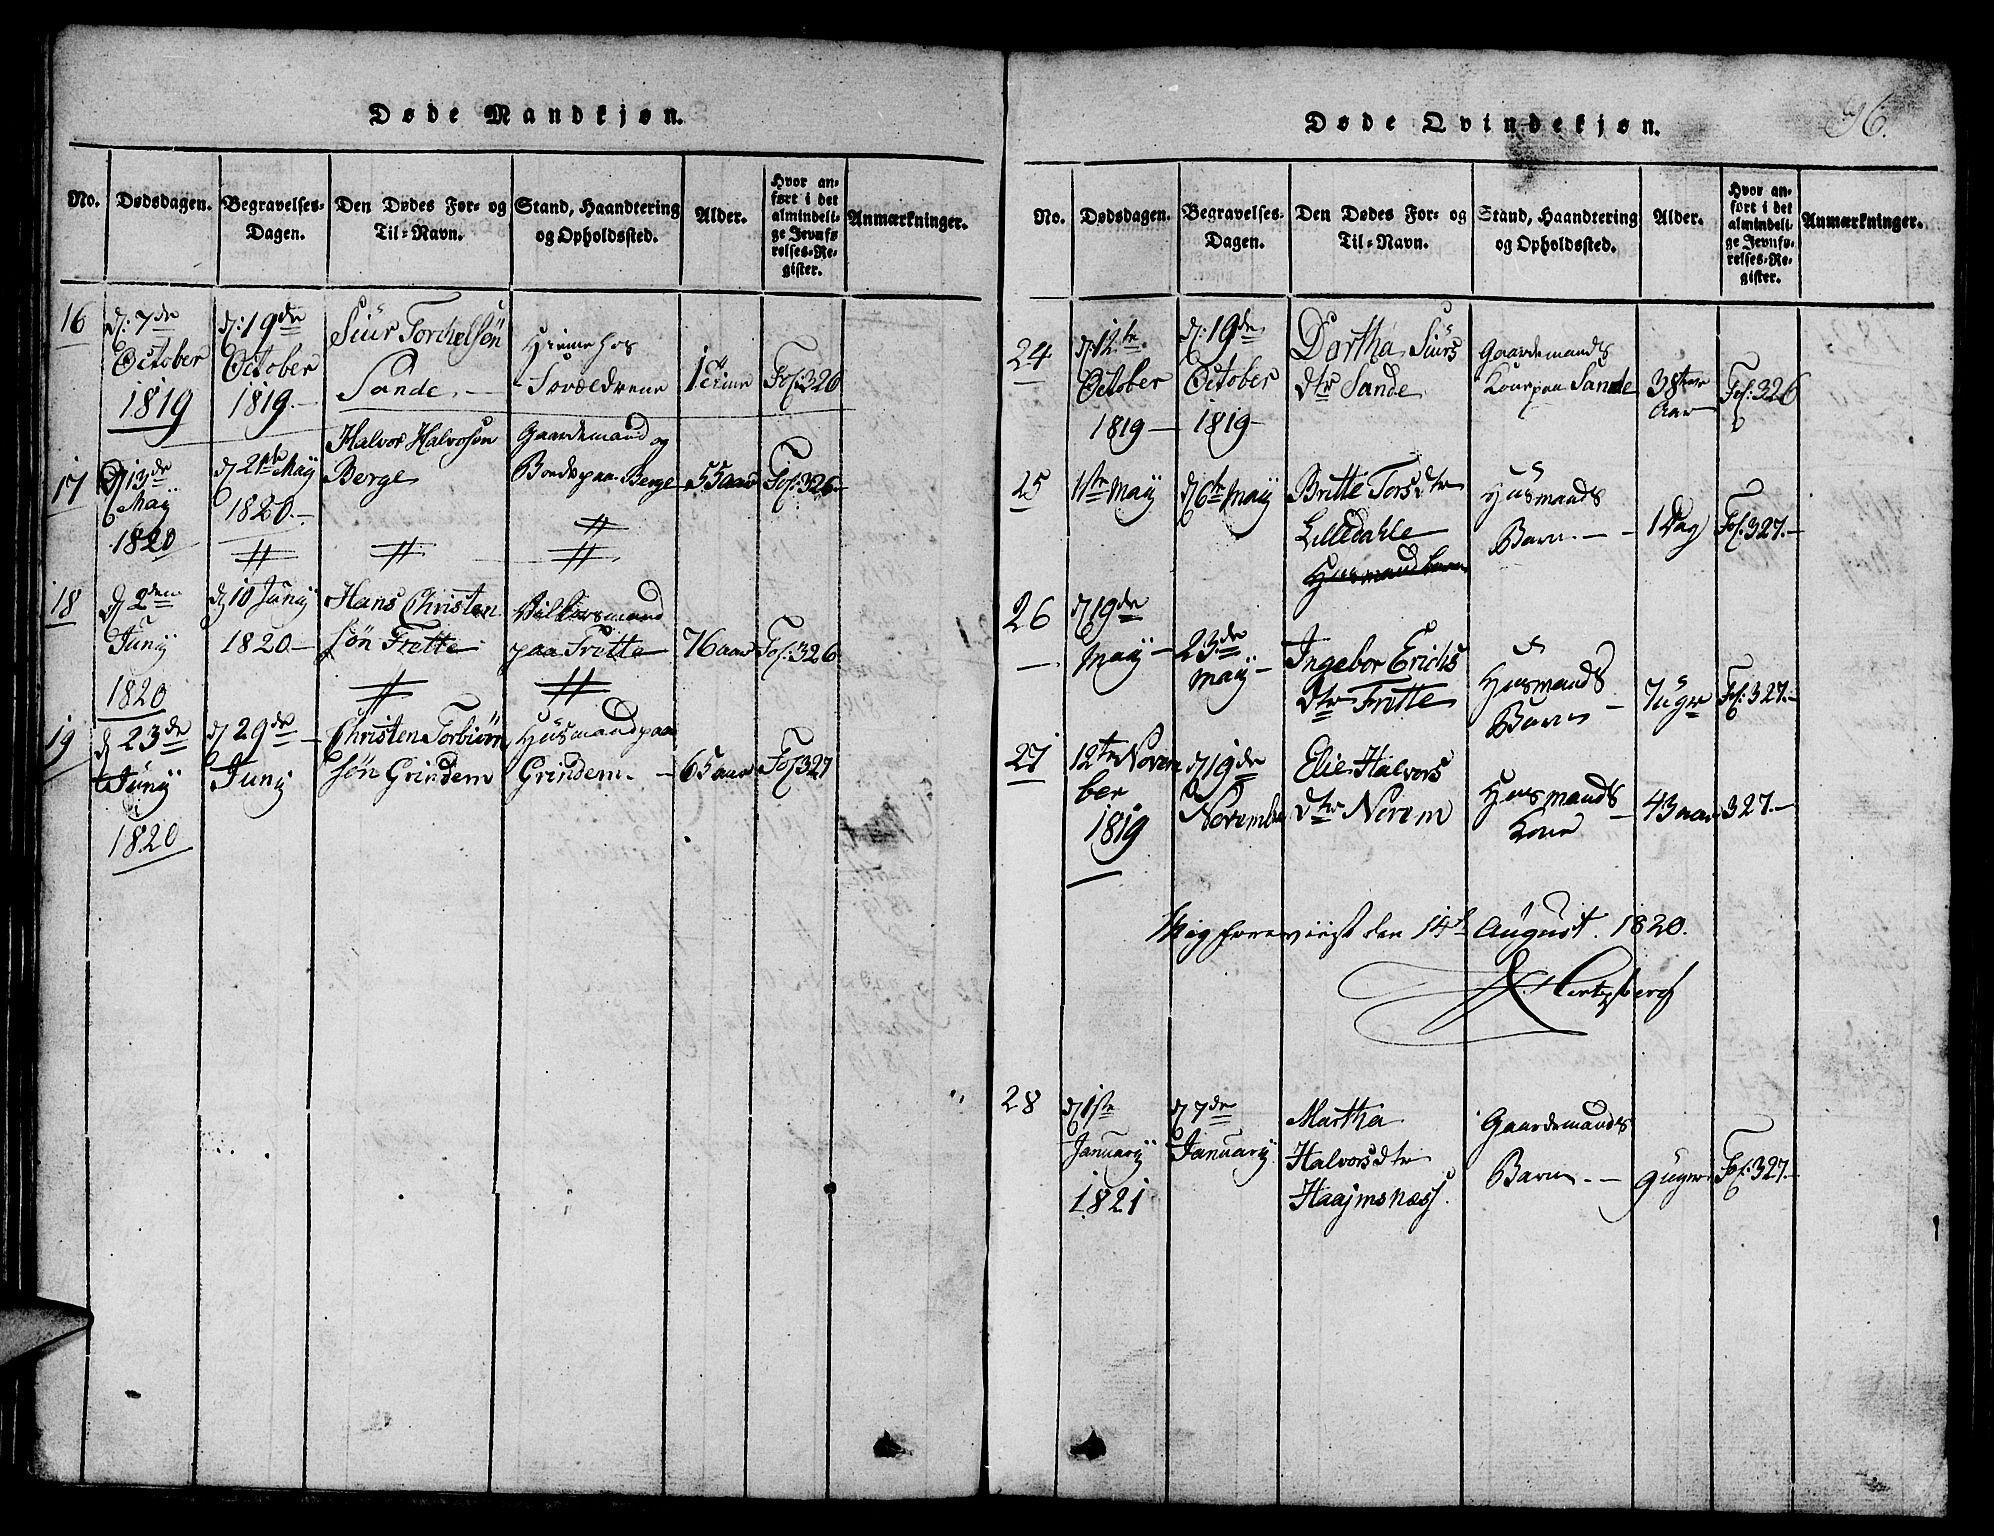 Døde Mandkjøn.
No.
Dødsdagen.
Begravelses-
Dagen.
Den Dødes For- og
Til-Navn.
Stand, Haandtering
og Opholdssted.
Alder.
Hvor an-
ført i det
almindeli-
ge Jevnfø
relses-Re-
gister.
Anmærkninger.
16
d: 7de
October
1819
d: 19de
October
1819.-
Siur Torchelsøn
Sande. -
Hiemme hos
Foreældrene
Fol: 326
17
d 13de
May
1820
d 21de May
1820.-
Halvor Halvorsøn
Berge
Gaardemand og
Bonde paa Berge
55 aar
Fol: 326-
18
d 2den
Junÿ
1820
d 10 Junÿ
1820.-
Hans Christen
søn Frette
paa Fritte
76 aar
Fol: 326
19
d 23de
Junÿ
1820
d 29de -
Junÿ
Christen Torbiørn
søn Grindem
Huusmand paa
Grindem. -
65 aar
Fol 327
Døde Qvindekjøn.
96.
No.
Dødsdagen.
Begravelses-
Dagen.
Den Dødes For- og
Til-Navn.
Stand, Haandtering
og Opholdssted.
Alder.
Hvor an-
ført i det
almindeli-
ge Jevnfø-
relses-Re-
gister.
Anmærkninger.
24
d: 12te
October
1819 -
d: 19de
October
1819-
Dortha Siurs
dtr Sande
Gaardemands
Kone paa Sande
38
Aar
Fol: 326
25
11te Maÿ
d 16te Maÿ
Britte Torsdtr
Lilledahle
Husmands
Barn. - -
1 Dag
Fol: 327.-
26
d 19de
Maÿ -
23de
Maÿ -
Ingebor Erichs
Dtr Fritte
Husmands
Barn -
7 Uger
Fol: 327.-
27
12te Novem
ber
1819
d 19de
November
Elie Halvors
dtr Nerem
Husmands
Kone -
43 aar
327.-
Mig foreviist den 14de August. 1820.
Hertzberg
28
d 1ste
Januarÿ
1821
d 7de
Januarÿ
Martha
Halvorsdtr
Haajmsnæss.
Gaardemands
Barn. - -
9 uger
Fol: 327.-